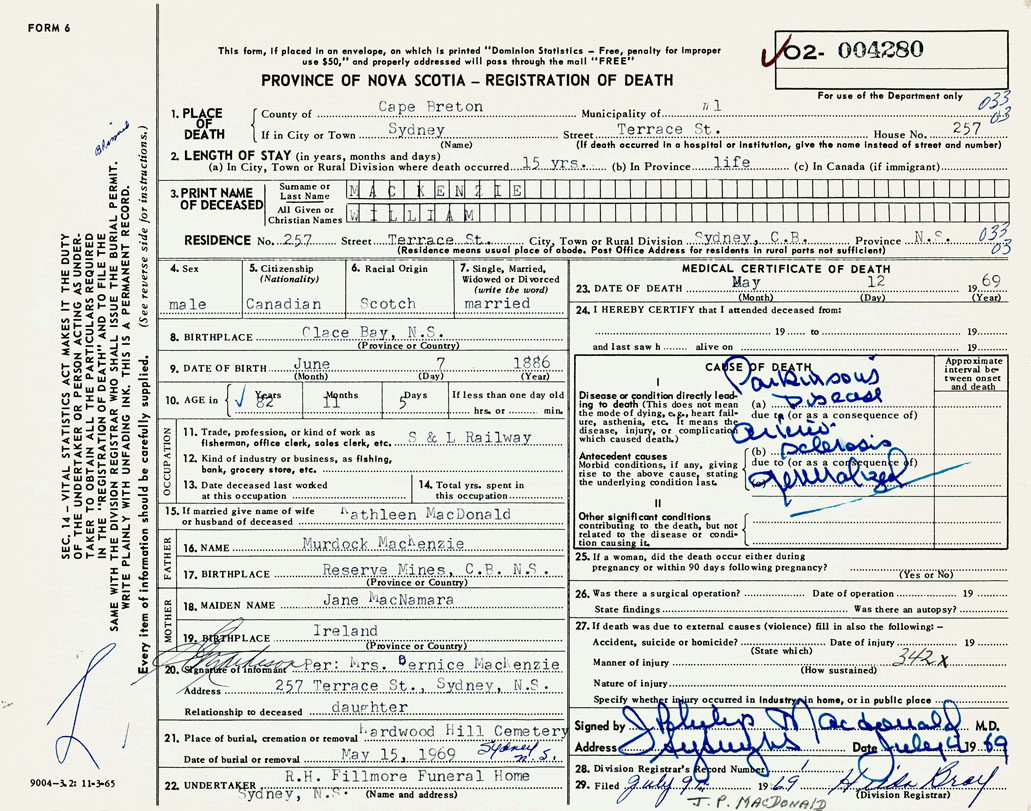 FORM 6
This form, if placed in an envelope, on which is printed "Dominion Statistics – Free, penalty for improper
use $50," and properly addressed will pass through the mail "FREE"
PROVINCE OF NOVA SCOTIA – REGISTRATION OF DEATH
02- 004280
For use of the Department only
033
03
1. PLACE OF DEATH
County of Cape Breton Municipality of #1
If in City or Town Sydney Street Terrace St. House No. 257
(Name) (If death occurred in a hospital or institution, give the name instead of street and number)
2. LENGTH OF STAY (in years, months and days)
(a) In City, Town or Rural Division where death occurred 15 yrs. (b) In Province life (c) In Canada (if immigrant)
3. PRINT NAME OF DECEASED
Surname or Last Name MACKENZIE
All Given or Christian Names WILLIAM
RESIDENCE No. 257 Street Terrace St. City, Town or Rural Division Sydney, C.B. Province N.S.
033
03
(Residence means usual place of abode. Post Office Address for residents in rural parts not sufficient)
4. Sex
male
5. Citizenship
(Nationality)
Canadian
6. Racial Origin
Scotch
7. Single, Married,
Widowed or Divorced
(write the word)
married
8. BIRTHPLACE Clace Bay, N.S.
(Province or Country)
9. DATE OF BIRTH June 7 1886
(Month) (Day) (Year)
10. AGE in Years Months Days If less than one day old
82 11 5 hrs. or min.
OCCUPATION
11. Trade, profession, or kind of work as
fisherman, office clerk, sales clerk, etc. S & L Railway
12. Kind of industry or business, as fishing,
bank, grocery store, etc.
13. Date deceased last worked
at this occupation
14. Total yrs. spent in
this occupation
15. If married give name of wife
or husband of deceased Kathleen MacDonald
FATHER
16. NAME Murdock MacKenzie
17. BIRTHPLACE Reserve Mines, C.B. N.S.
(Province or Country)
MOTHER
18. MAIDEN NAME Jane MacNamara
19. BIRTHPLACE Ireland
(Province or Country)
20. Signature of informant Per: Mrs. Bernice MacKenzie
Address 257 Terrace St., Sydney, N.S.
Relationship to deceased daughter
21. Place of burial, cremation or removal Hardwood Hill Cemetery
Date of burial or removal May 15, 1969 Sydney N.S.
22. UNDERTAKER R.H. Fillmore Funeral Home
Sydney, N.S. (Name and address)
MEDICAL CERTIFICATE OF DEATH
23. DATE OF DEATH May 12 1969
(Month) (Day) (Year)
24. I HEREBY CERTIFY that I attended deceased from:
19 to 19
and last saw h alive on 19
CAUSE OF DEATH
Approximate
interval be-
tween onset
and death
I
Disease or condition directly lead-
ing to death (This does not mean
the mode of dying, e.g., heart fail-
ure, asthenia, etc. It means the
disease, injury, or complication
which caused death.)
Parkinson's
(a) Disease
due to (or as a consequence of)
Antecedent causes
Morbid conditions, if any, giving
rise to the above cause, stating
the underlying condition last.
arterio
(b) sclerosis
due to (or as a consequence of)
(c) generalized
II
Other significant conditions
contributing to the death, but not
related to the disease or condi-
tion causing it.
25. If a woman, did the death occur either during
pregnancy or within 90 days following pregnancy?
(Yes or No)
26. Was there a surgical operation? Date of operation 19
State findings Was there an autopsy?
27. If death was due to external causes (violence) fill in also the following: –
Accident, suicide or homicide? Date of injury 19
(State which)
Manner of injury 342x
(How sustained)
Nature of injury
Specify whether injury occurred in industry, in home, or in public place
Signed by J Philip Macdonald M.D.
Address Sydney NS Date July 9 1969
28. Division Registrar's Record Number
29. Filed July 9th 1969 Hilda Bray
(Division Registrar)
J. P. MACDONALD
SEC. 14 – VITAL STATISTICS ACT MAKES IT THE DUTY
OF THE UNDERTAKER OR PERSON ACTING AS UNDER-
TAKER TO OBTAIN ALL THE PARTICULARS REQUIRED
IN THE "REGISTRATION OF DEATH" AND TO FILE THE
SAME WITH THE DIVISION REGISTRAR WHO SHALL ISSUE THE BURIAL PERMIT.
WRITE PLAINLY WITH UNFADING INK. THIS IS A PERMANENT RECORD.
Every item of information should be carefully supplied. (See reverse side for instructions.)
9004–3.2: 11-3-65